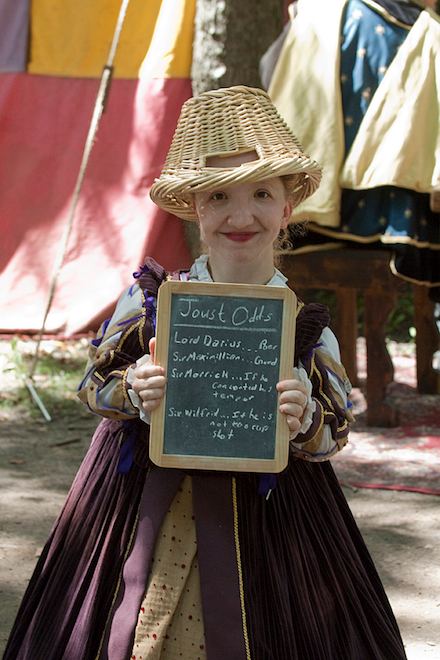 Joust Odds
Lord Darius... Poor
Sir Maximillion... Good
Sir Marrick... If he
can control his
temper
Sir Wilfrid... If he is
not to cup
shot